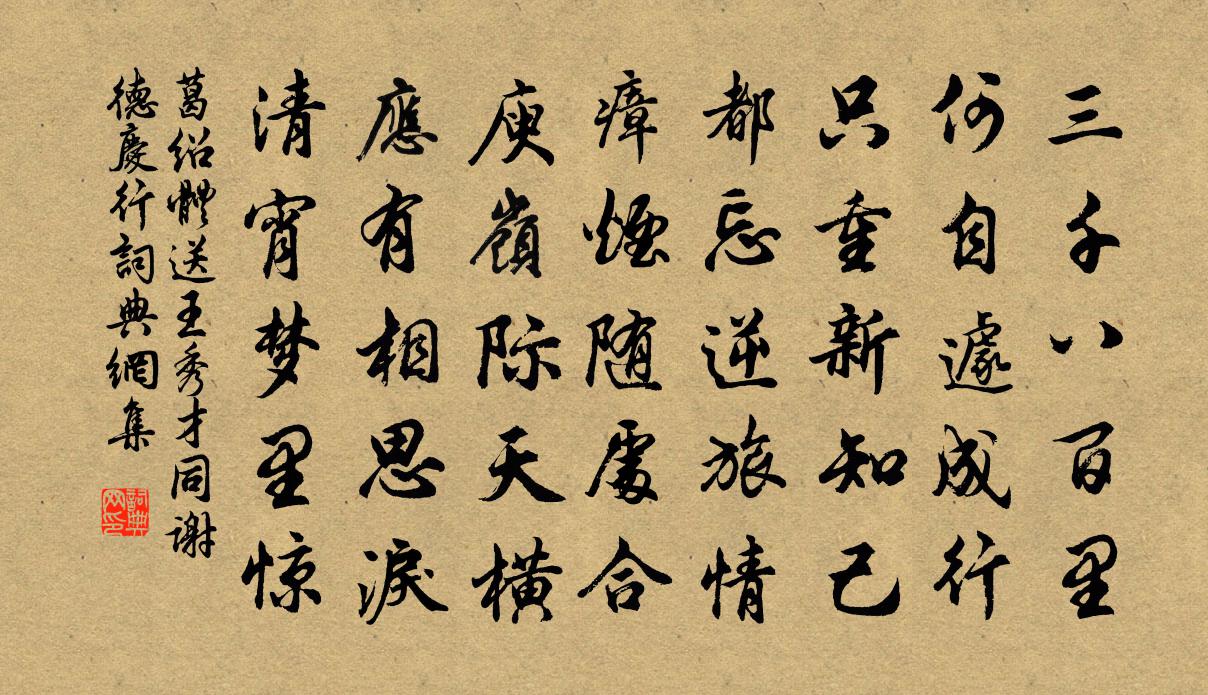 三千八百里
何自遽成行
只重新知己
都忘逆旅情
瘴烟随處合
庾嶺际天横
應有相思淚
清宵梦里惊
葛绍體送王秀才同谢
德慶行詞典網集
詞典网印